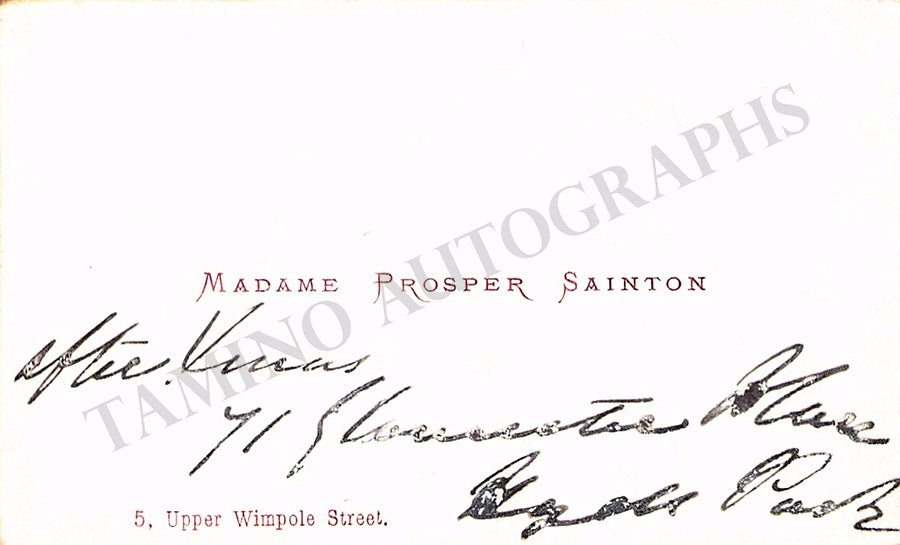 MADAME PROSPER SAINTON
after Xmas
71 Gloucester Place
Hyde Park
5, Upper Wimpole Street.
TAMINO AUTOGRAPHS